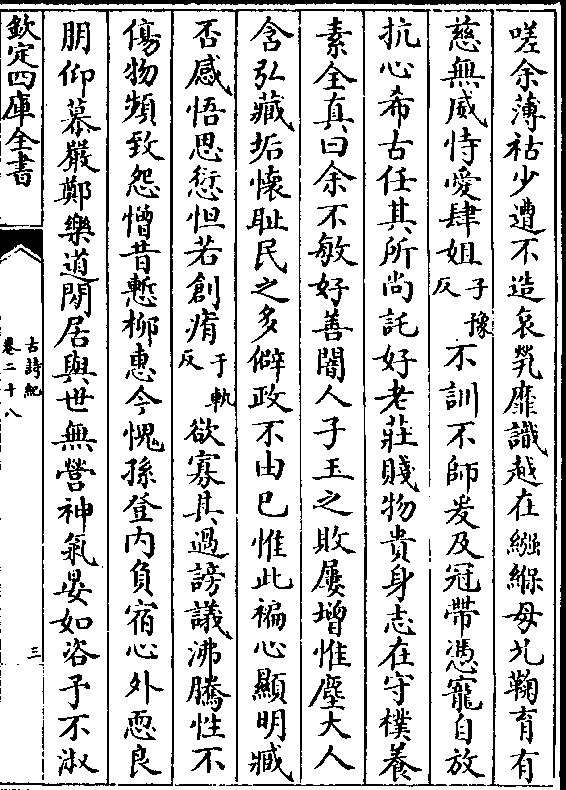 嗟余薄祜少遭不造哀煢靡識越在繦緥母兄鞠育有
慈無威恃愛肆姐子豫反不訓不師爰及冠帶憑寵自放
抗心希古任其所尚託好老莊賤物貴身志在守樸養
素全真曰余不敏好善闇人子玉之敗屢增惟塵大人
含弘藏垢懷耻民之多僻政不由己惟此褊心顯明臧
否感悟思愆怛若創痏于軌反欲寡其過謗議沸騰性不
傷物頻致怨憎昔慙柳惠今愧孫登内負宿心外恧良
朋仰慕嚴鄭樂道閒居與世無營神氣晏如咨予不淑
欽定四庫全書
古詩紀
卷二十八
三